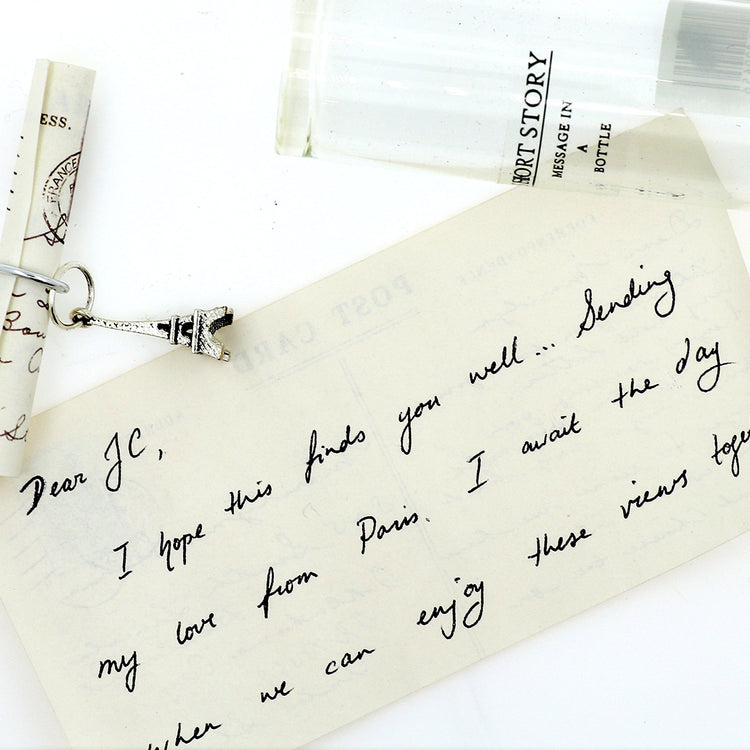 ESS.
FRANCE
HORT STORY
MESSAGE IN
A
BOTTLE
POST CARD
Dear JC,
I hope this finds you well... Sending
my love from Paris. I await the day
when we can enjoy these views toge